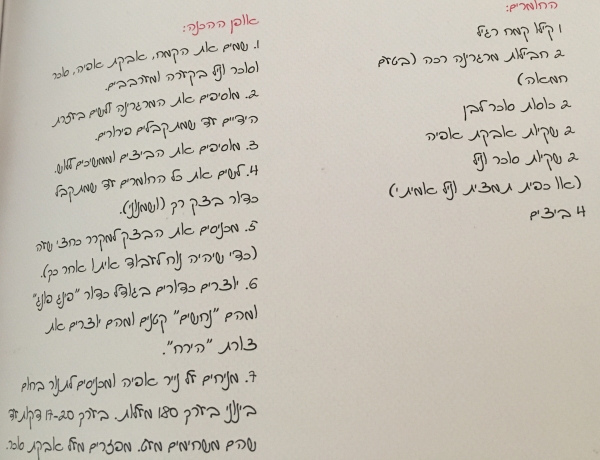 החומרים:
1 קילו קמח רגיל
2 חבילות מרגרינה רכה (בטעם
חמאה)
2 כוסות סוכר לבן
2 שקיות אבקת אפיה
2 שקיות סוכר וניל
(או כפית תמצית וניל אמיתי)
4 ביצים
אופן ההכנה:
1. שמים את הקמח, אבקת אפיה, סוכר
וסוכר וניל בקערה ומערבבים.
2. מוסיפים את המרגרינה ולשים בעזרת
הידיים עד שמתקבלים פירורים.
3. מוסיפים את הביצים וממשיכים ללוש.
4. לשים את כל החומרים עד שמתקבל
כדור בצק רק (ושמנוני).
5. מכניסים את הבצק למקרר כחצי שעה
(כדי שיהיה נוח לעבוד איתו אחר כך).
6. יוצרים כדורים בגודל כדור "פינג פונג"
ומהם "נחשים" קטנים ומהם יוצרים את
צורת "הירח".
7. מניחים על נייר אפיה ומכניסים לתנור בחום
בינוני בערך 180 מעלות. בערך 17-20 דקות עד
שהם משחימים מעט. מפזרים מעל אבקת סוכר.